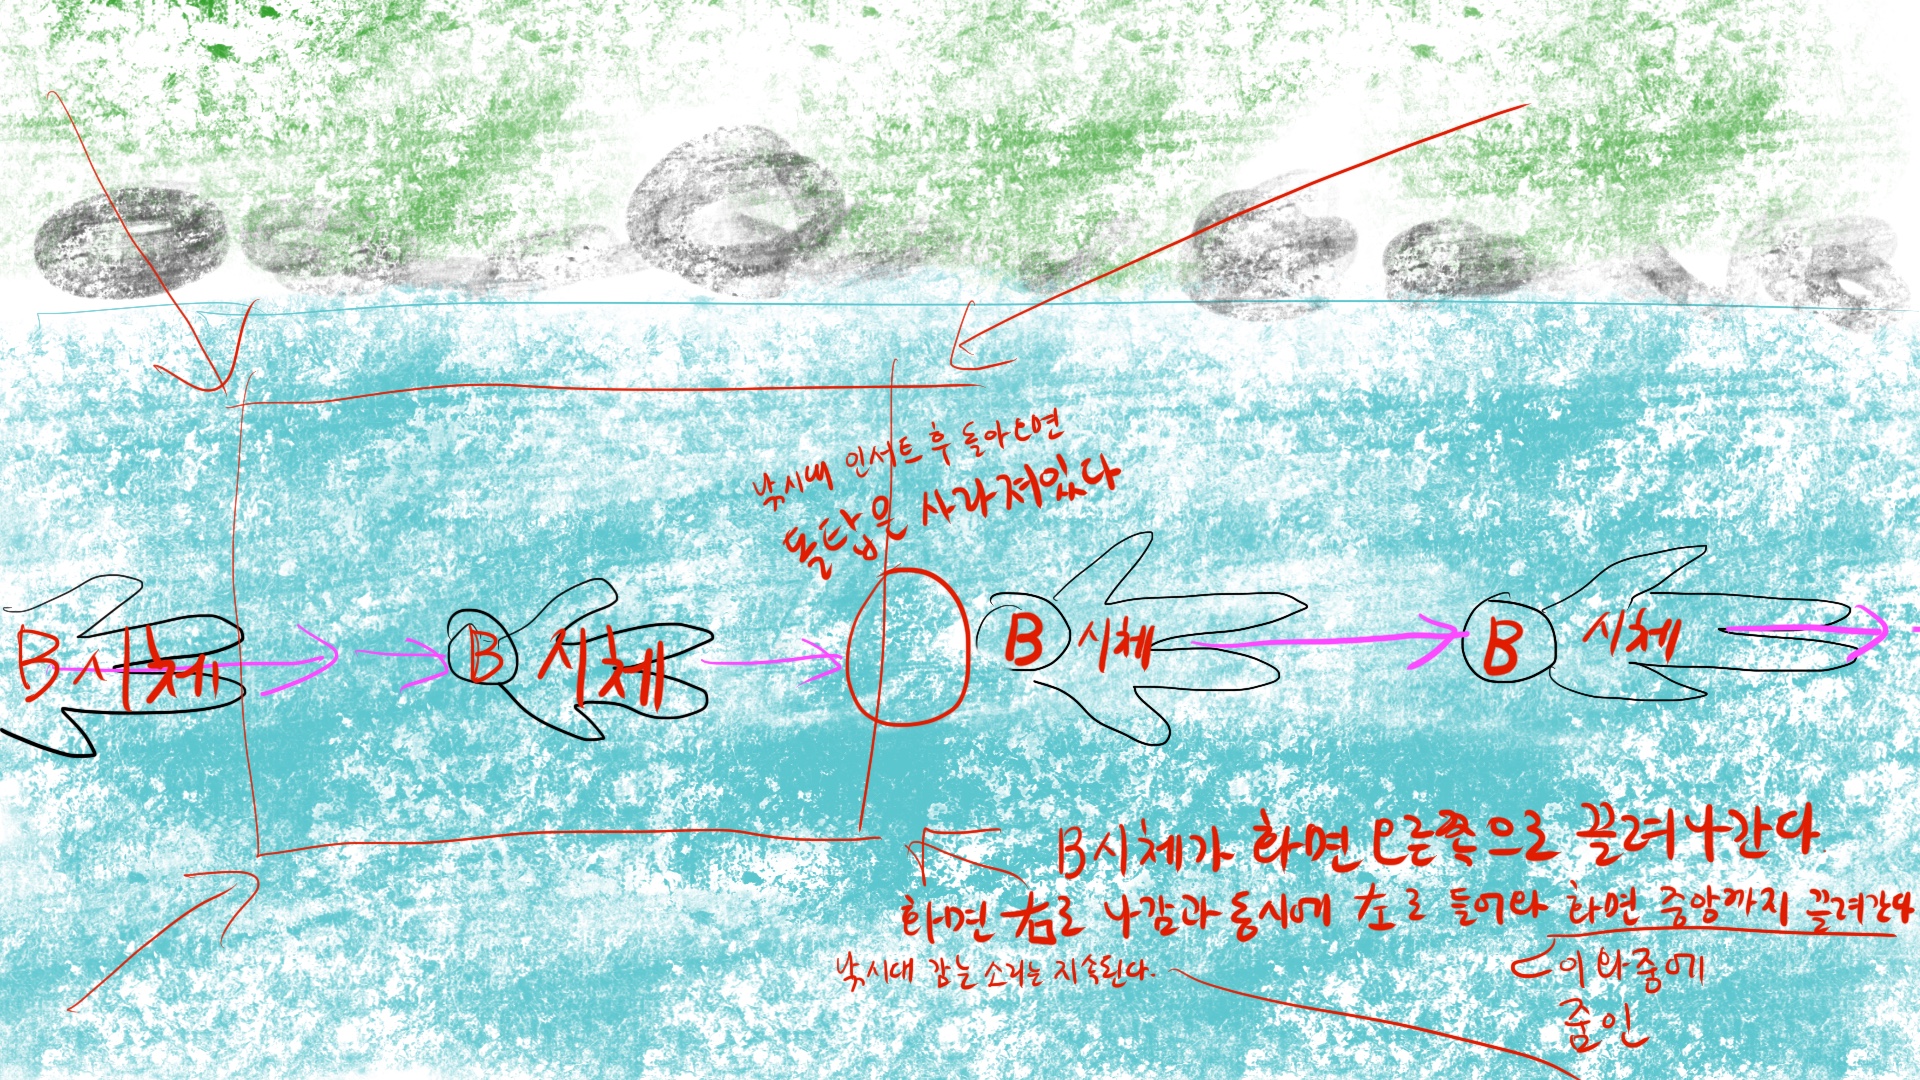 낚시대 인서트 후 돌아오면
돌탑은 사라져있다
B 시체
B 시체
B 시체
B 시체
B시체가 화면 오른쪽으로 끌려나간다
화면 右로 나감과 동시에 左로 들어와 화면 중앙까지 끌려간다
낚시대 감는 소리는 지속된다.
이 와중에
줌인